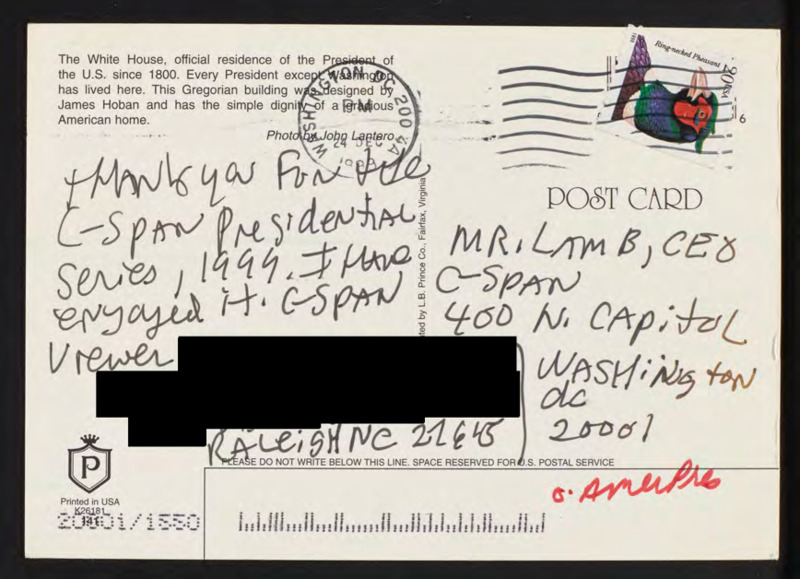 The White House, official residence of the President of
the U.S. since 1800. Every President except Washington
has lived here. This Gregorian building was designed by
James Hoban and has the simple dignity of a gracious
American home.
Photo by John Lantero
WASHINGTON DC 200
PM
24 DEC
1999
Ring-necked Pheasant
20 USA
POST CARD
THANK you FOR the
C-SPAN PresidentiAL
Series, 1999. I HAVE
enjoyed it. C-SPAN
Viewer
RALeigH NC 27645
MR. LAMB, CEO
C-SPAN
400 N. CAPitoL
WASHiNgtoN
dc
20001
ted by L.B. Prince Co., Fairfax, Virginia
PLEASE DO NOT WRITE BELOW THIS LINE. SPACE RESERVED FOR U.S. POSTAL SERVICE
P
Printed in USA
K26181
20001/1550
AmerPres